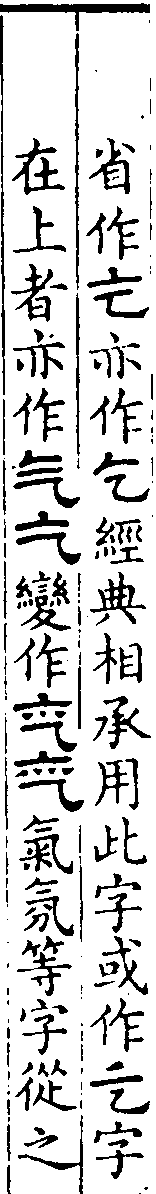 省作亡亦作乞經典相承用此字或作㐌字
在上者亦作气𠂉變作𠅏𠅏氣氛等字從之